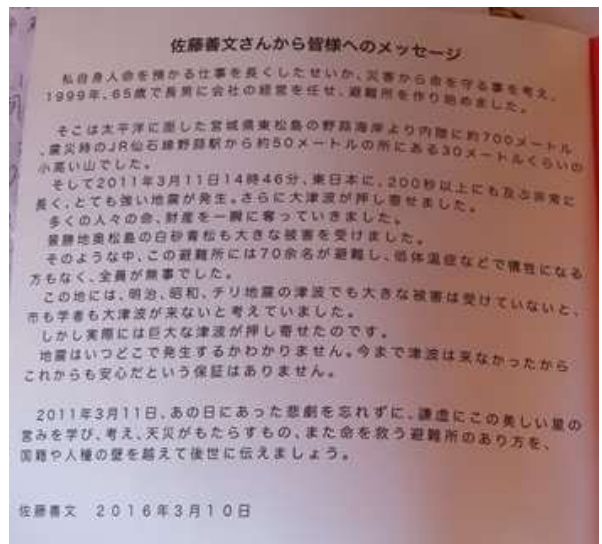 佐藤善文さんから皆様へのメッセージ
私自身人命を預かる仕事を長くしたせいか、災害から命を守る事を考え、
1999年、65歳で長男に会社の経営を任せ、避難所を作り始めました。
そこは太平洋に面した宮城県東松島の野蒜海岸より内陸に約700メートル
、震災時のJR仙石線野蒜駅から約50メートルの所にある30メートルくらいの
小高い山でした。
そして2011年3月11日14時46分、東日本に、200秒以上にも及ぶ非常に
長く、とても強い地震が発生。さらに大津波が押し寄せました。
多くの人々の命、財産を一瞬に奪っていきました。
景勝地奥松島の白砂青松も大きな被害を受けました。
そのような中、この避難所には70余名が避難し、低体温症などで犠牲になる
方もなく、全員が無事でした。
この地には、明治、昭和、チリ地震の津波でも大きな被害は受けていないと、
市も学者も大津波が来ないと考えていました。
しかし実際には巨大な津波が押し寄せたのです。
地震はいつどこで発生するかわかりません。今まで津波は来なかったから
これからも安心だという保証はありません。
2011年3月11日、あの日にあった悲劇を忘れずに、謙虚にこの美しい星の
営みを学び、考え、天災がもたらすもの、また命を救う避難所のあり方を、
国籍や人種の壁を越えて後世に伝えましょう。
佐藤善文 2016年3月10日